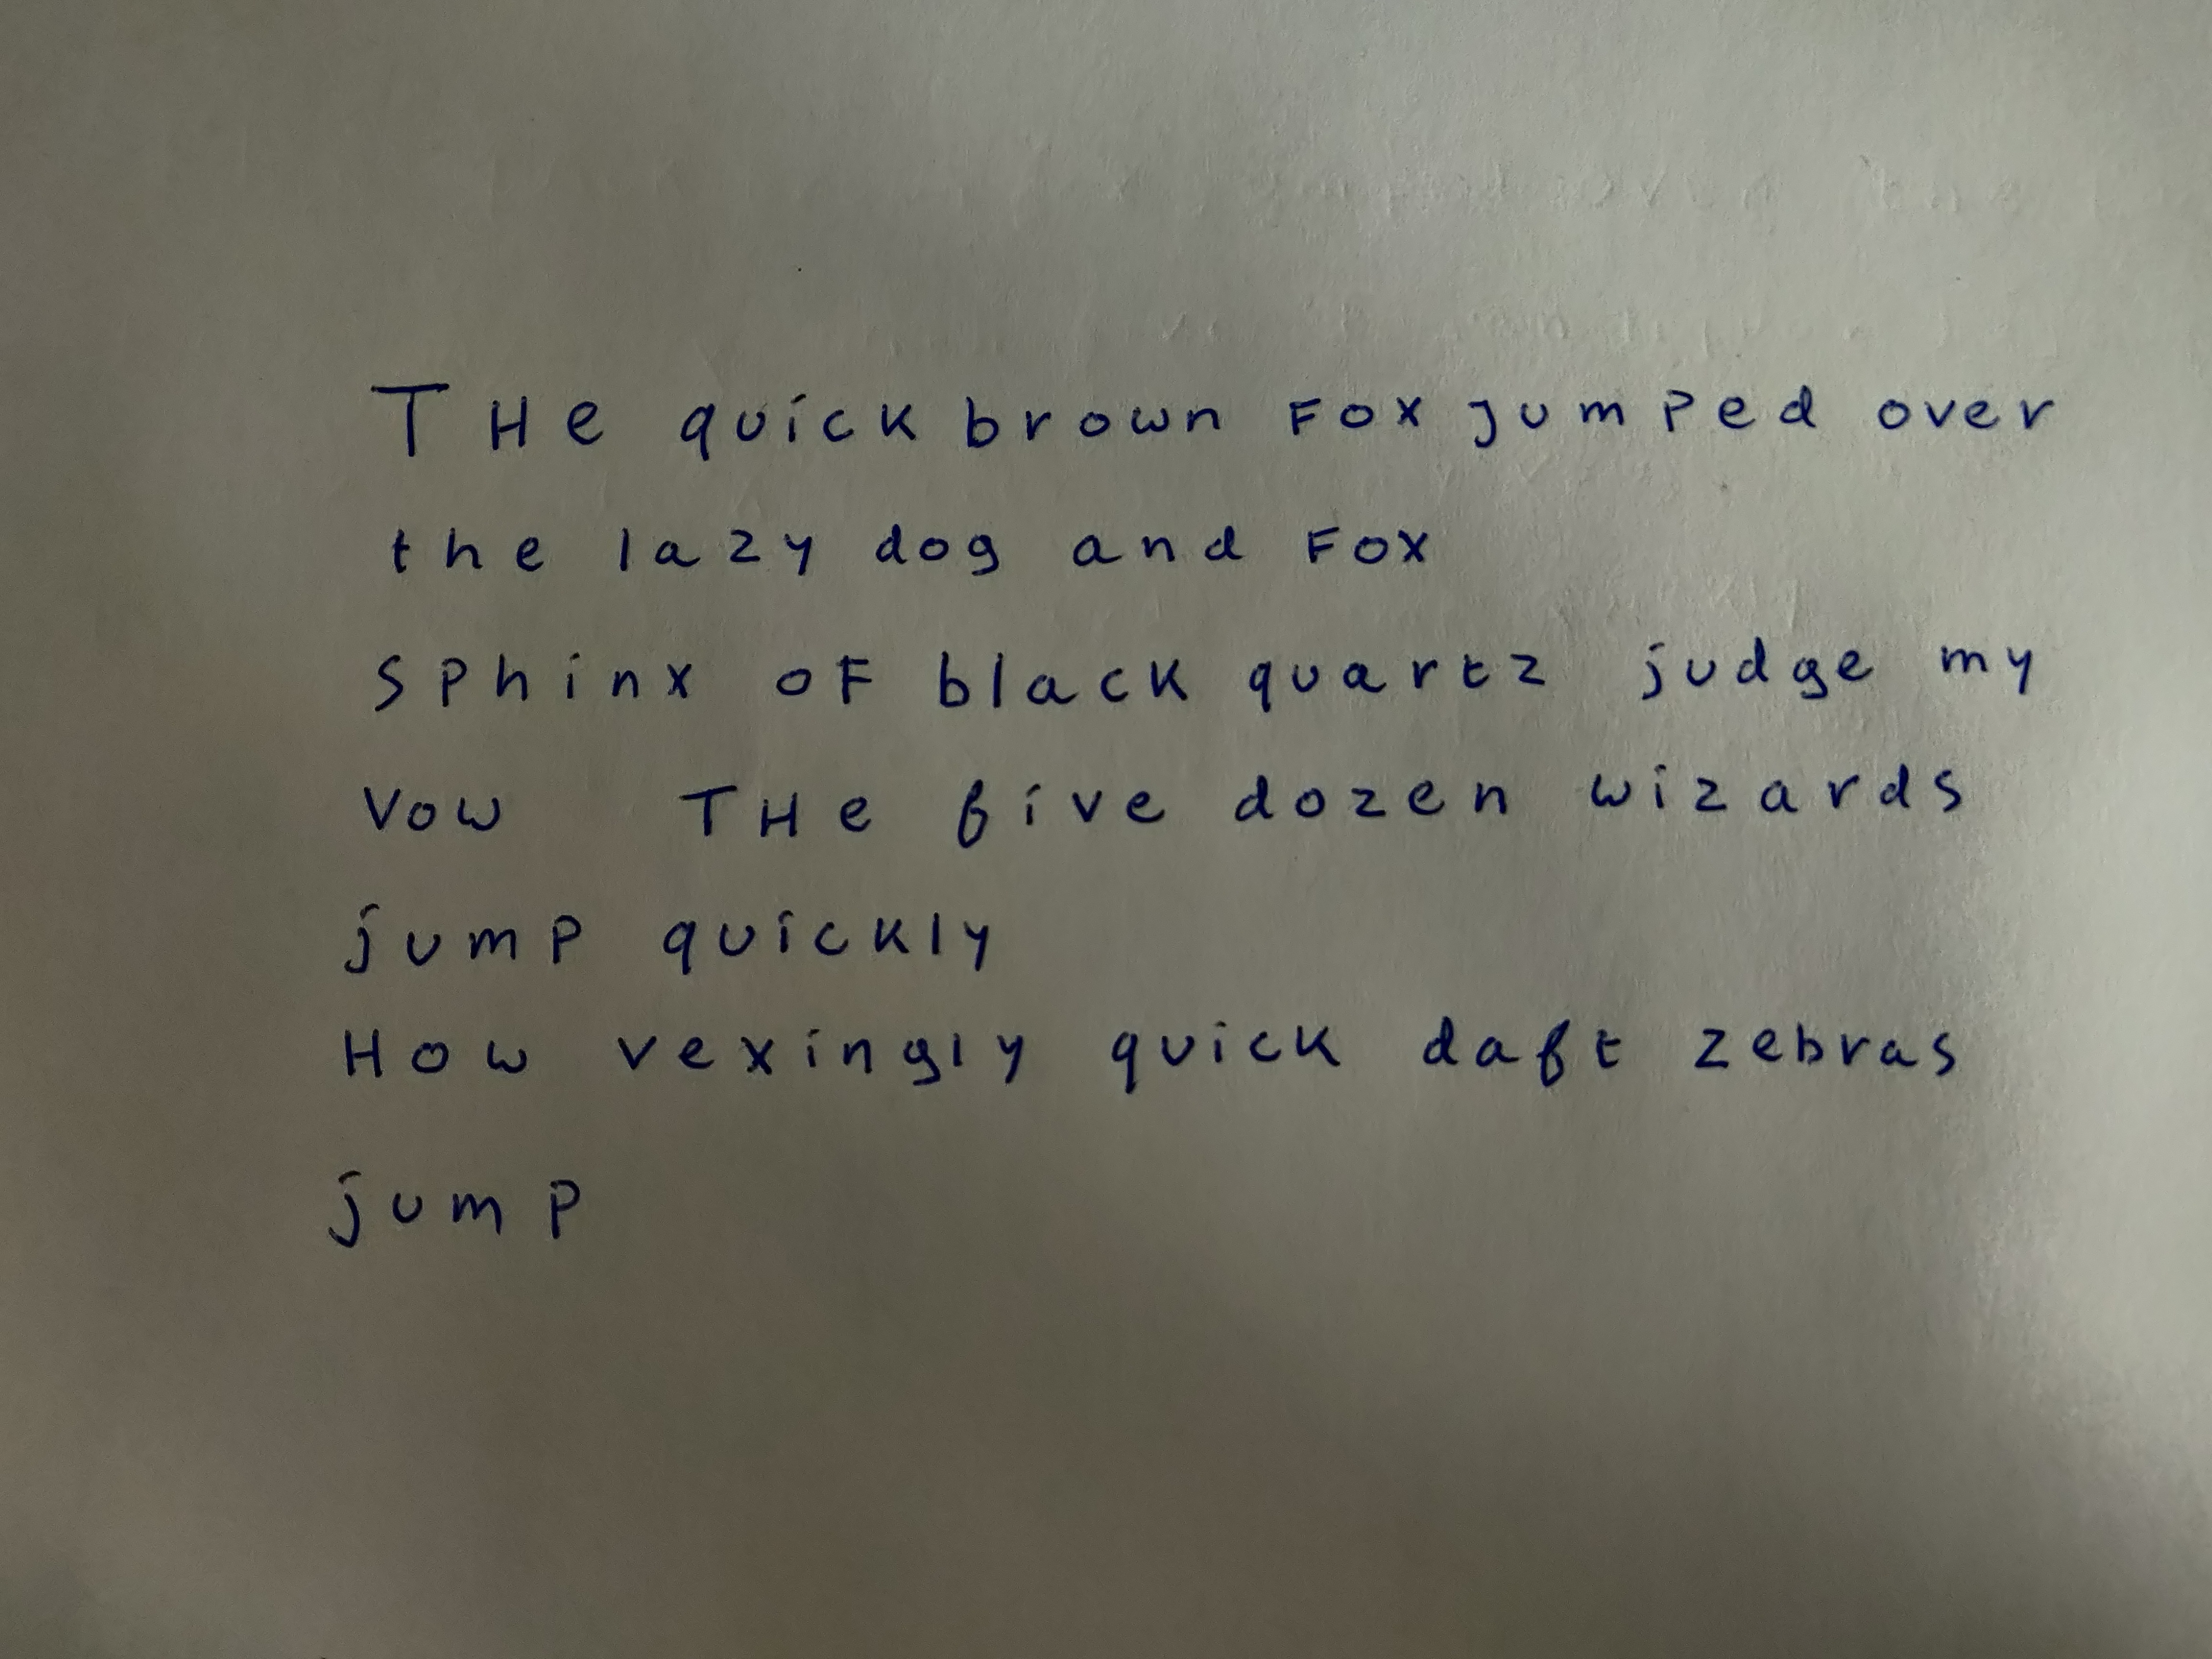 THe quick brown Fox jumped over
the lazy dog and Fox
sphinx oF black quartz judge my
Vow THe five dozen wizards
jump quickly
How vexingly quick daft zebras
jump